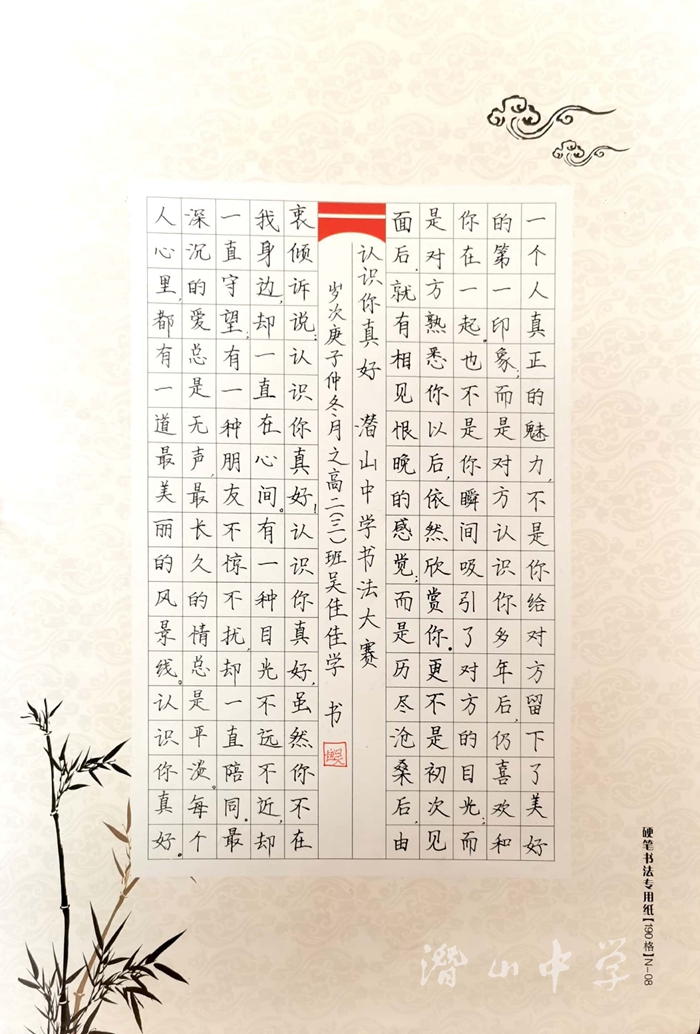 一个人真正的魅力,不是你给对方留下了美好
的第一印象;而是对方认识你多年后,仍喜欢和
你在一起。也不是你瞬间吸引了对方的目光;而
是对方熟悉你以后,依然欣赏你。更不是初次见
面后,就有相见恨晚的感觉;而是历尽沧桑后,由
认识你真好 潜山中学书法大赛
岁次庚子仲冬月之高二(三)班吴佳佳学书
衷倾诉说:认识你真好!认识你真好,虽然你不在
我身边,却一直在心间。有一种目光不远不近,却
一直守望;有一种朋友不惊不扰,却一直陪同。最
深沉的爱总是无声,最长久的情总是平淡。每个
人心里,都有一道最美丽的风景线。认识你真好。
硬笔书法专用纸【190格】N-08
潜山中学